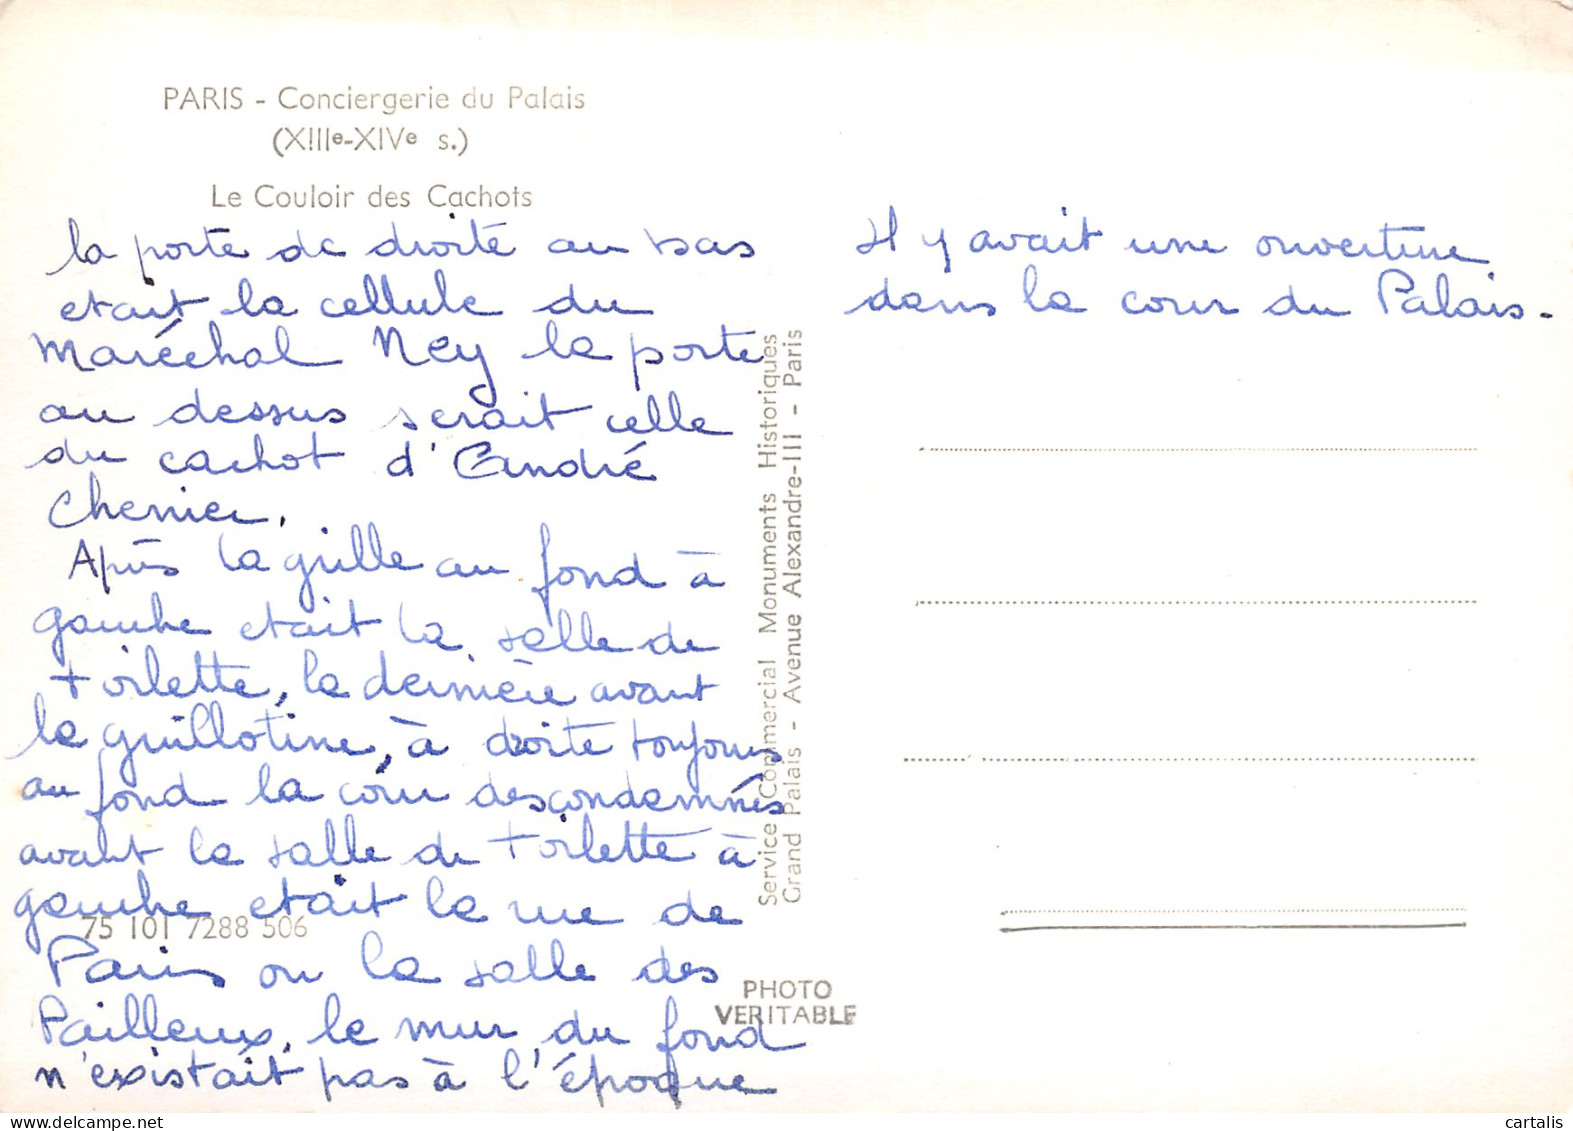 PARIS - Conciergerie du Palais
(XIIIe-XIVe s.)
Le Couloir des Cachots
la porte de droite au bas
etait la cellule du
Maréchal Ney la porte
au dessus serait celle
du cachot d'André
Chenier.
Après la grille au fond à
gauche etait la salle de
toilette, la dernière avant
la guillotine, à droite toujours
au fond la cour des condamnés
avant la salle de toilette à
gauche etait la rue de
Paris ou la salle des
Pailleux, le mur du fond
n'existait pas à l'époque
75 101 7288 506
Service Commercial Monuments Historiques
Grand Palais - Avenue Alexandre-III - Paris
PHOTO
VERITABLE
Il y avait une ouverture
dans la cour du Palais.
cartalis